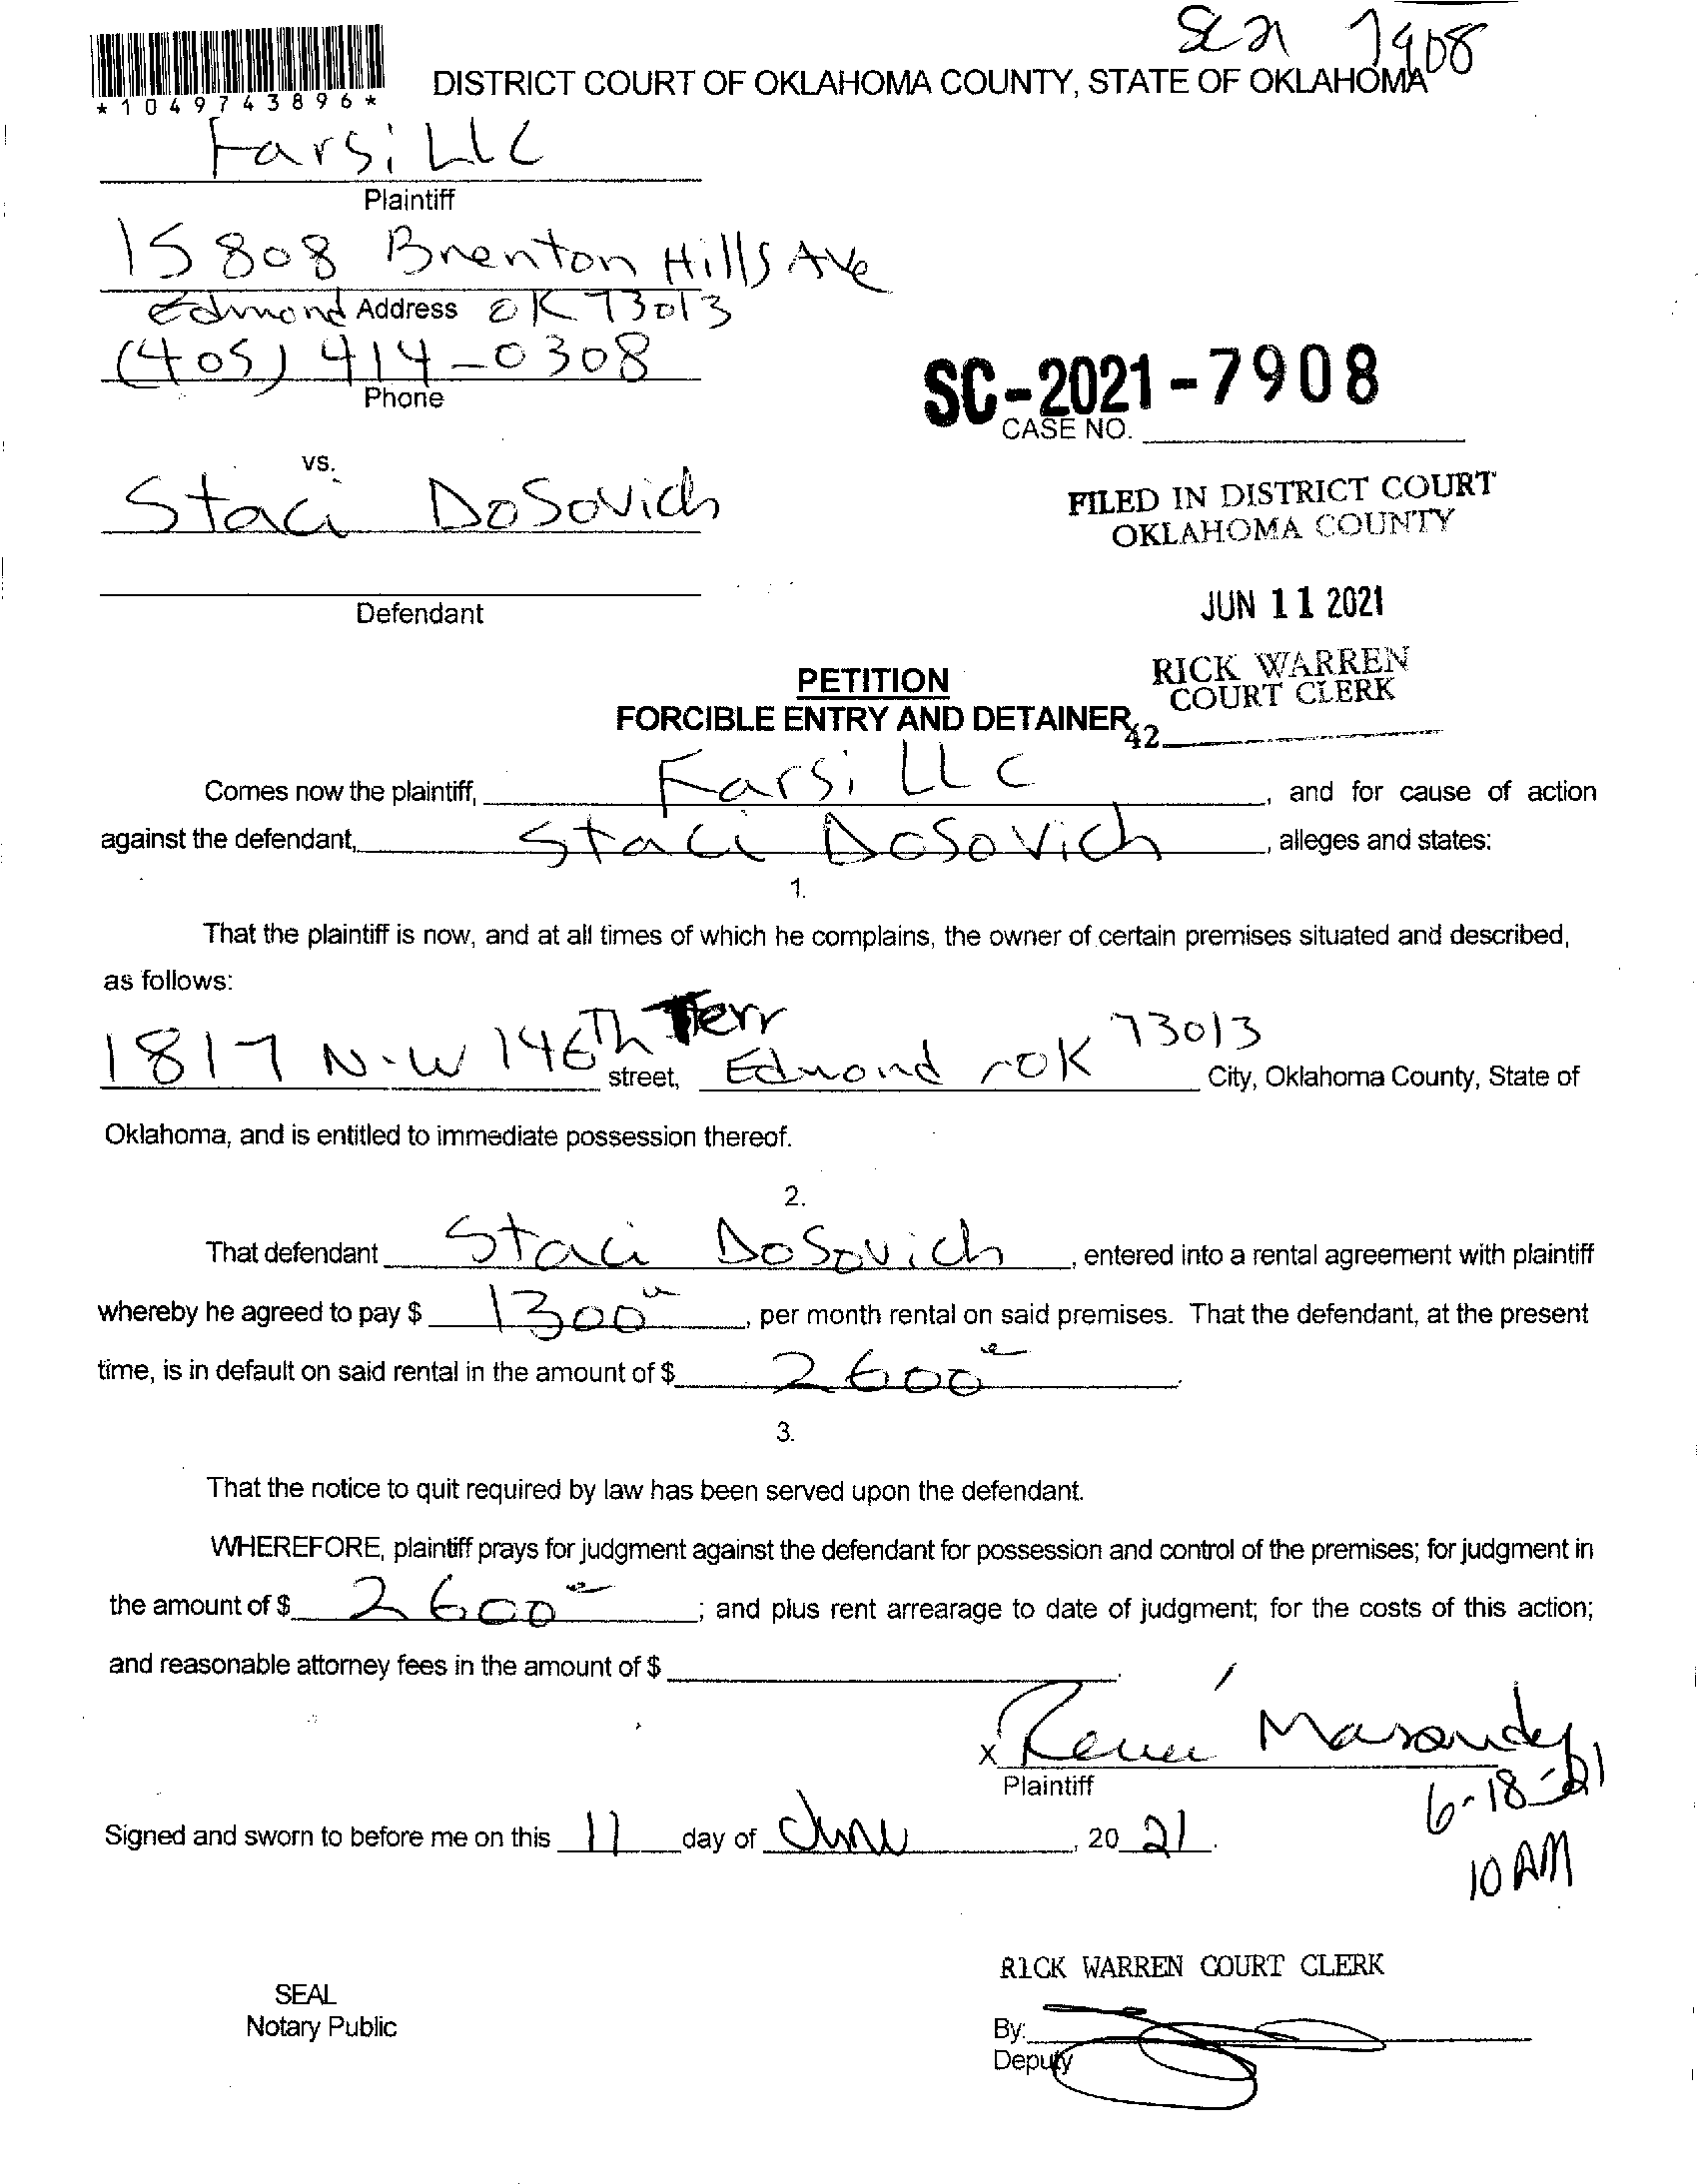 7908
DISTRICT COURT OF OKLAHOMA COUNTY, STATE OF OKLAHOMA
*1049743896*
Farsi LLC
Plaintiff
15808 Brenton Hills Ave
Edmond Address OK 73013
(405) 414-0308
Phone
SC-2021-7908
CASE NO.
vs.
Staci DoSovich
FILED IN DISTRICT COURT
OKLAHOMA COUNTY
Defendant
JUN 11 2021
RICK WARREN
COURT CLERK
PETITION
FORCIBLE ENTRY AND DETAINER
42
Comes now the plaintiff, Farsi LLC, and for cause of action
against the defendant, Staci DoSovich, alleges and states:
1.
That the plaintiff is now, and at all times of which he complains, the owner of certain premises situated and described,
as follows:
1817 N.W 146Th Terr street, Edmond, OK 73013 City, Oklahoma County, State of
Oklahoma, and is entitled to immediate possession thereof.
2.
That defendant Staci DoSovich, entered into a rental agreement with plaintiff
whereby he agreed to pay $ 1300, per month rental on said premises. That the defendant, at the present
time, is in default on said rental in the amount of $ 2600.
3.
That the notice to quit required by law has been served upon the defendant.
WHEREFORE, plaintiff prays for judgment against the defendant for possession and control of the premises; for judgment in
the amount of $ 2600; and plus rent arrearage to date of judgment; for the costs of this action;
and reasonable attorney fees in the amount of $
x
Plaintiff
6-18-21
10 AM
Signed and sworn to before me on this 11 day of June, 20 21.
RICK WARREN COURT CLERK
SEAL
Notary Public
By:
Deputy